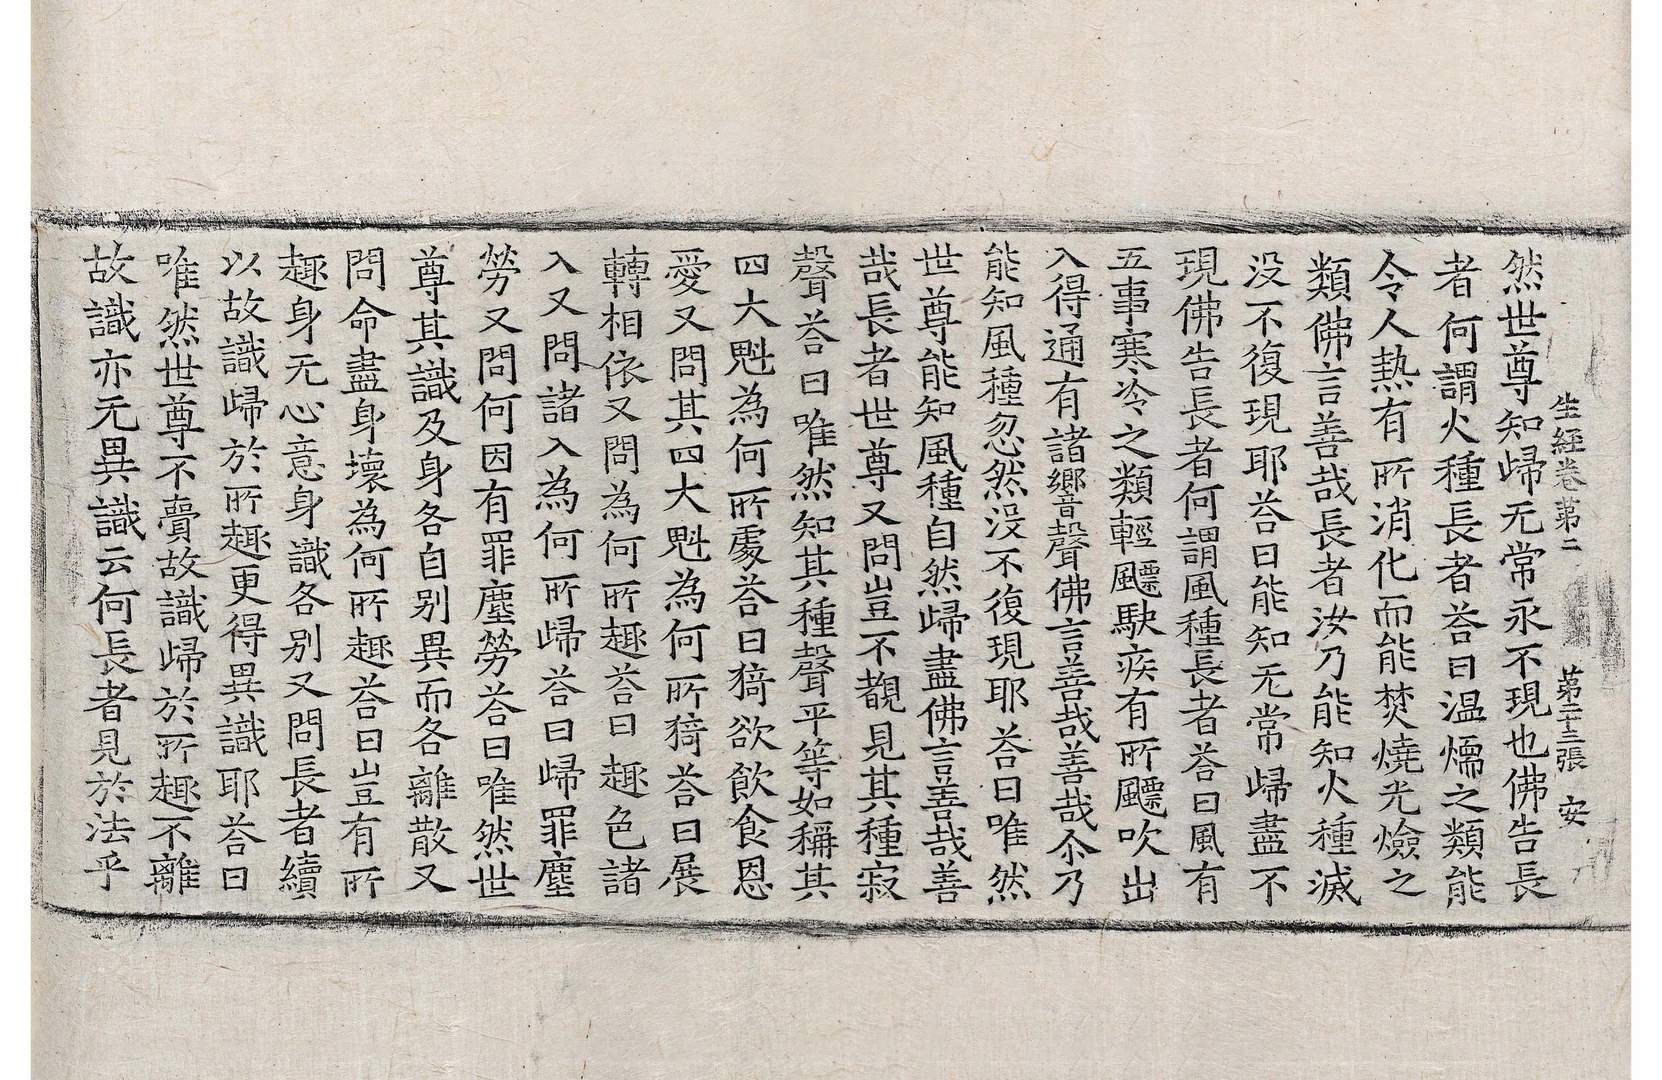 生經卷第二　第二十三張　安
然世尊知歸无常永不現也佛告長
者何謂火種長者荅曰温燸之類能
令人熱有所消化而能焚燒光燄之
類佛言善哉長者汝乃能知火種滅
没不復現耶荅曰能知无常歸盡不
現佛告長者何謂風種長者荅曰風有
五事寒冷之類輕飄駛疾有所飄吹出
入得通有諸響聲佛言善哉善哉尒乃
能知風種忽然没不復現耶荅曰唯然
世尊能知風種自然歸盡佛言善哉善
哉長者世尊又問豈不覩見其種寂
聲荅曰唯然知其種聲平等如稱其
四大魁為何所處荅曰猗欲飲食恩
愛又問其四大魁為何所猗荅曰展
轉相依又問為何所趣荅曰趣色諸
入又問諸入為何所歸荅曰歸罪塵
勞又問何因有罪塵勞荅曰唯然世
尊其識及身各自别異而各離散又
問命盡身壞為何所趣荅曰豈有所
趣身无心意身識各别又問長者續
以故識歸於所趣更得異識耶荅曰
唯然世尊不賷故識歸於所趣不離
故識亦无異識云何長者見於法乎